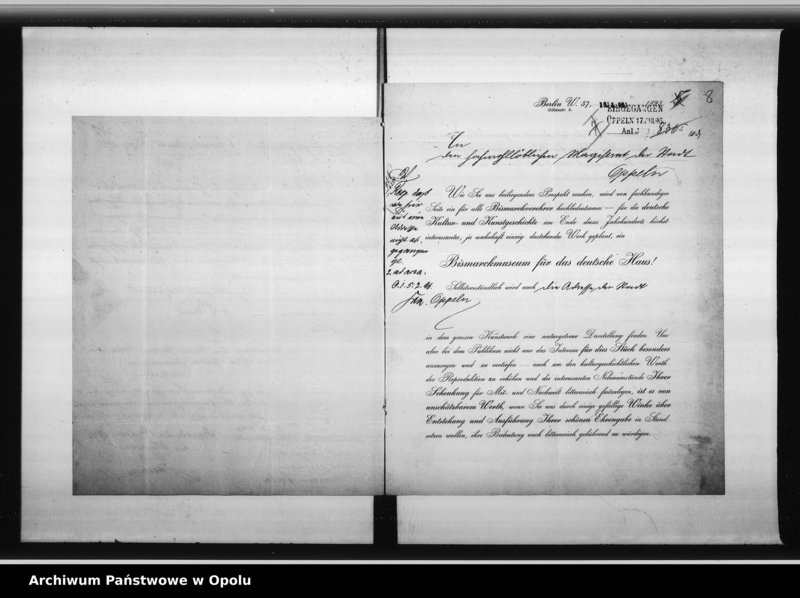 8
Berlin W. 57,
EINGEGANGEN
OPPELN 17
Anl.
An
den hochwohllöblichen Magistrat der Stadt
Oppeln
Wie Sie aus beiliegendem Prospekt ersehen, wird von fachkundiger
Seite ein für alle Bismarckverehrer hochbedeutsames — für die deutsche
Kultur- und Kunstgeschichte am Ende dieses Jahrhunderts höchst
interessantes, ja wahrhaft einzig dastehendes Werk geplant, ein
Bismarckmuseum für das deutsche Haus!
Selbstverständlich wird auch die Adresse der Stadt
Oppeln
in dem grossen Kunstwerk eine naturgetreue Darstellung finden. Um
aber bei dem Publikum nicht nur das Interesse für das Stück besonders
anzuregen und zu vertiefen — auch um den kulturgeschichtlichen Werth
der Reproduktion zu erhöhen und die interessanten Nebenumstände Ihrer
Schenkung für Mit- und Nachwelt litterarisch festzulegen, ist es von
unschätzbarem Werth, wenn Sie uns durch einige gefällige Winke über
Entstehung und Ausführung Ihrer schönen Ehrengabe in Stand
setzen wollen, ihre Bedeutung auch litterarisch gebührend zu würdigen.
von hier
auch eine
Adresse
nicht ab-
gegangen
ist.
2. ad acta.
O. 5. 2. 96.
Archiwum Państwowe w Opolu